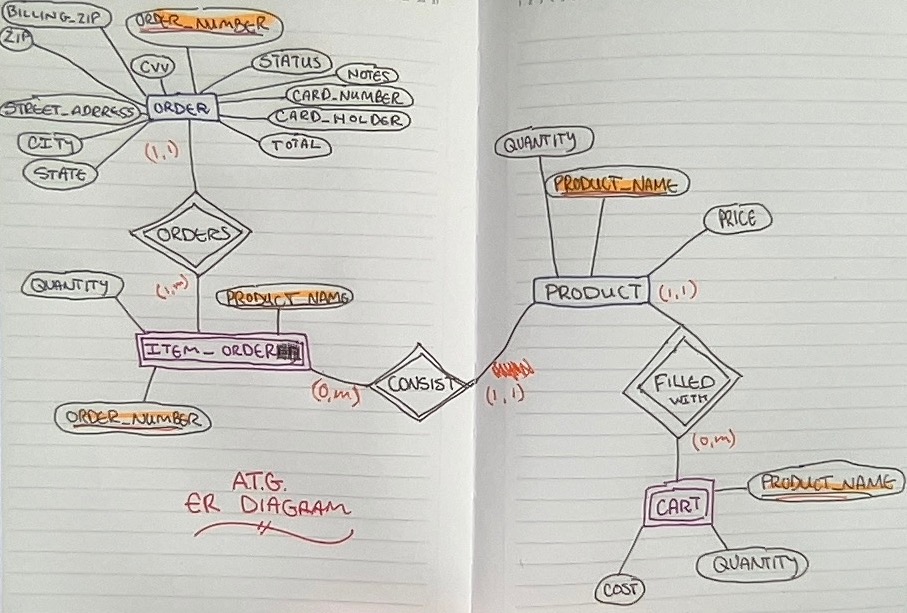 BILLING_ZIP
ORDER_NUMBER
ZIP
CVV
STATUS
NOTES
STREET_ADDRESS
ORDER
CARD_NUMBER
CARD_HOLDER
CITY
(1,1)
TOTAL
STATE
ORDERS
QUANTITY
(1,m)
PRODUCT_NAME
ITEM_ORDER
(0,m)
CONSIST
(1,1)
ORDER_NUMBER
A.T.G.
ER DIAGRAM
QUANTITY
PRODUCT_NAME
PRICE
PRODUCT
(1,1)
FILLED
WITH
(0,m)
CART
PRODUCT_NAME
QUANTITY
COST